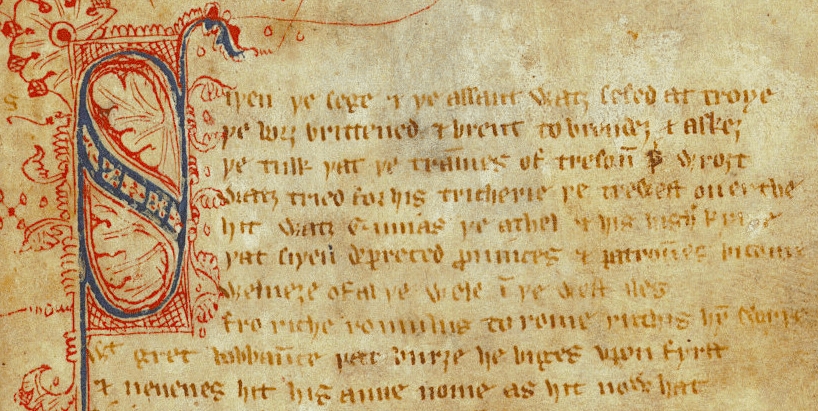 Siþen þe sege & þe assaut watz sesed at troye
þe borȝ brittened & brent to brondeȝ & askez
þe tulk þat þe trāmes of tresoū þ̄ wroȝt
watz tried for his tricherie þe trewest on erthe
hit watz Ennias þe athel & his highe kynde
þat siþen depreced prouinces & patrounes bicome
welneȝe of al þe wele ī þe west iles
fro riche romulus to rome ricchis hȳ swyþe
wt gret bobbaūce þat burȝe he biges vpon fyrst
& neuenes hit his aune nome as hit now hat